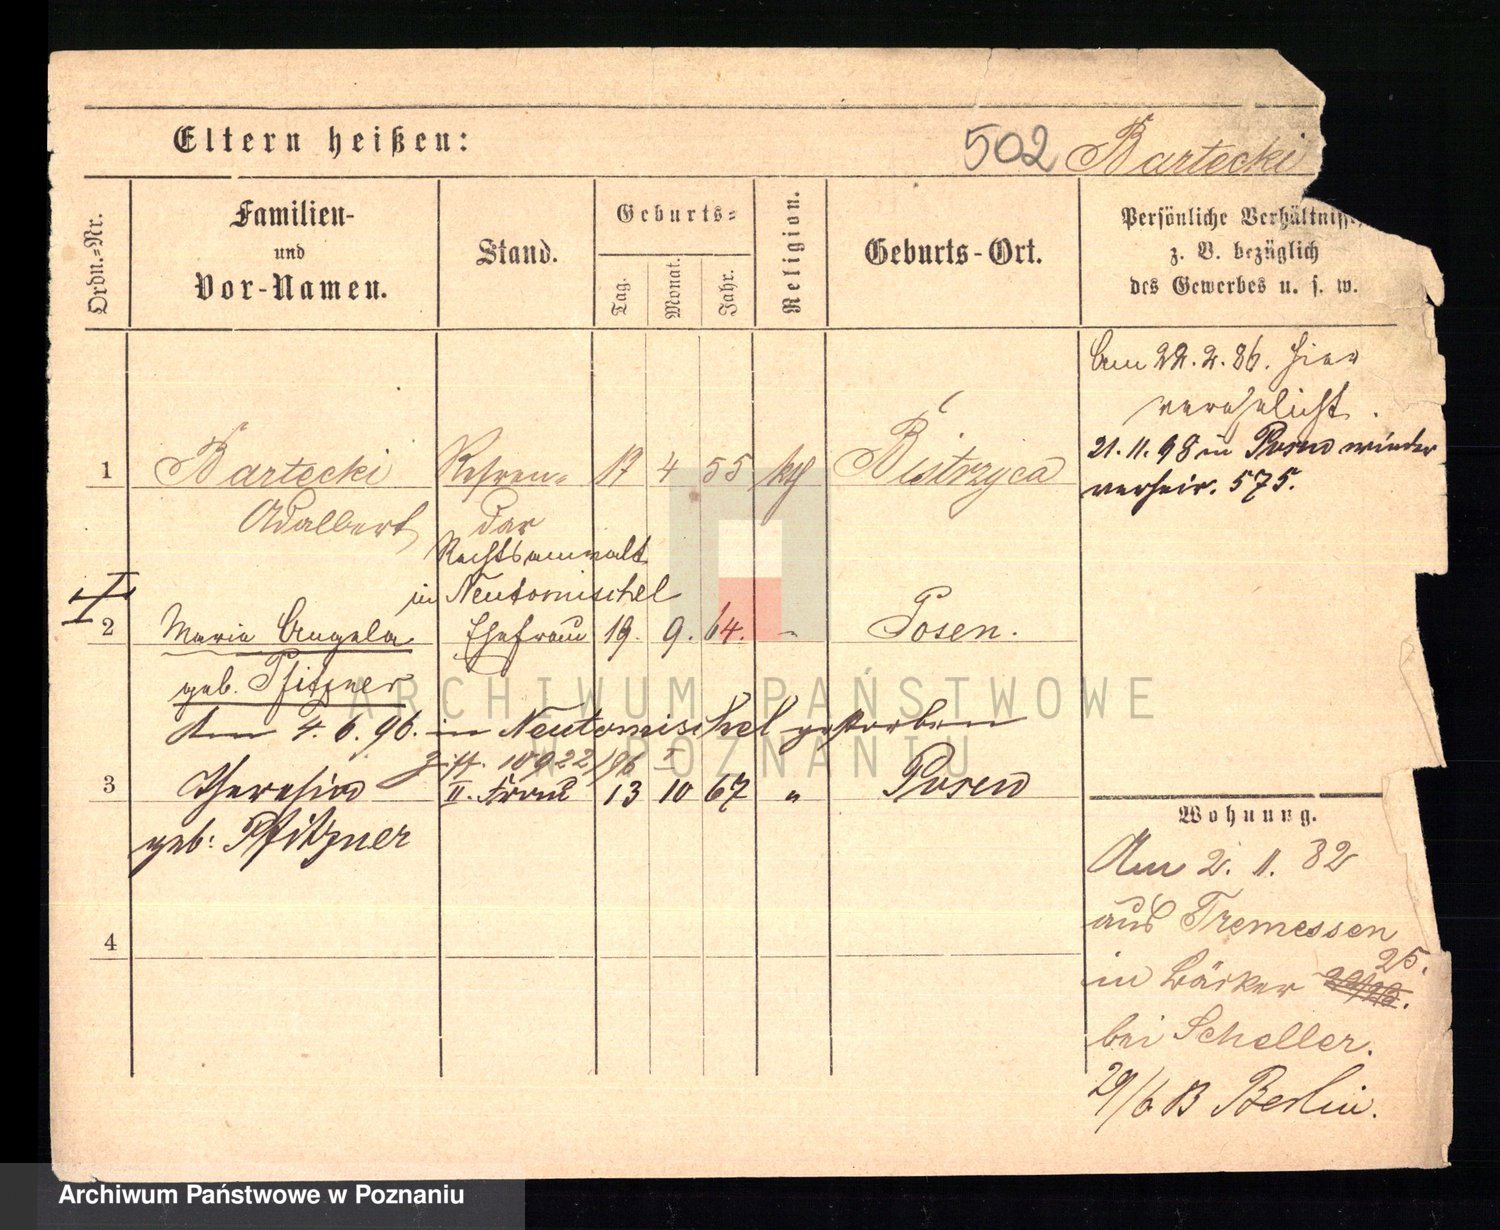 Eltern heißen:
502 Bartecki
Ordn.-Nr.
Familien-
und
Vor-Namen.
Stand.
Geburts-
Tag.
Monat.
Jahr.
Religion.
Geburts-Ort.
Persönliche Verhältnisse,
z. B. bezüglich
des Gewerbes u. s. w.
Am 22.2.86. hier
verehelicht.
21.11.98 in Posen wieder
verheir. 575.
1 Bartecki Referen- 17 4 55 kth Bistrzyca
Adalbert dar
Rechtsanwalt
in Neutomischel
2 Maria Angela Ehefrau 19. 9. 64. " Posen.
geb. Pfitzner
Am 4.6.96. in Neutomischel gestorben
10922/96 I
3 Theresia II. Frau 13 10 67 " Posen
geb: Pfitzner
4
Wohnung.
Am 2. 11. 82
aus Tremessen
in Bäcker 25.
bei Scheller.
29/6 83 Berlin.
ARCHIWUM PAŃSTWOWE
W POZNANIU
Archiwum Państwowe w Poznaniu